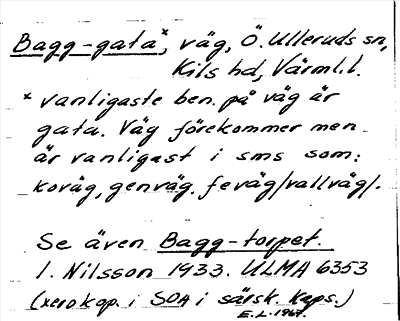 Bagg-gata*, väg, Ö. Ulleruds sn,
Kils hd, Värml.l.
* vanligaste ben. på väg är
gata. Väg förekommer men
är vanligast i sms som:
koväg, genväg, feväg/vallväg/.
Se även Bagg-torpet.
I. Nilsson 1933. ULMA 6353
(xerokop. i SOA i särsk. kaps.)
E.L. 1967.